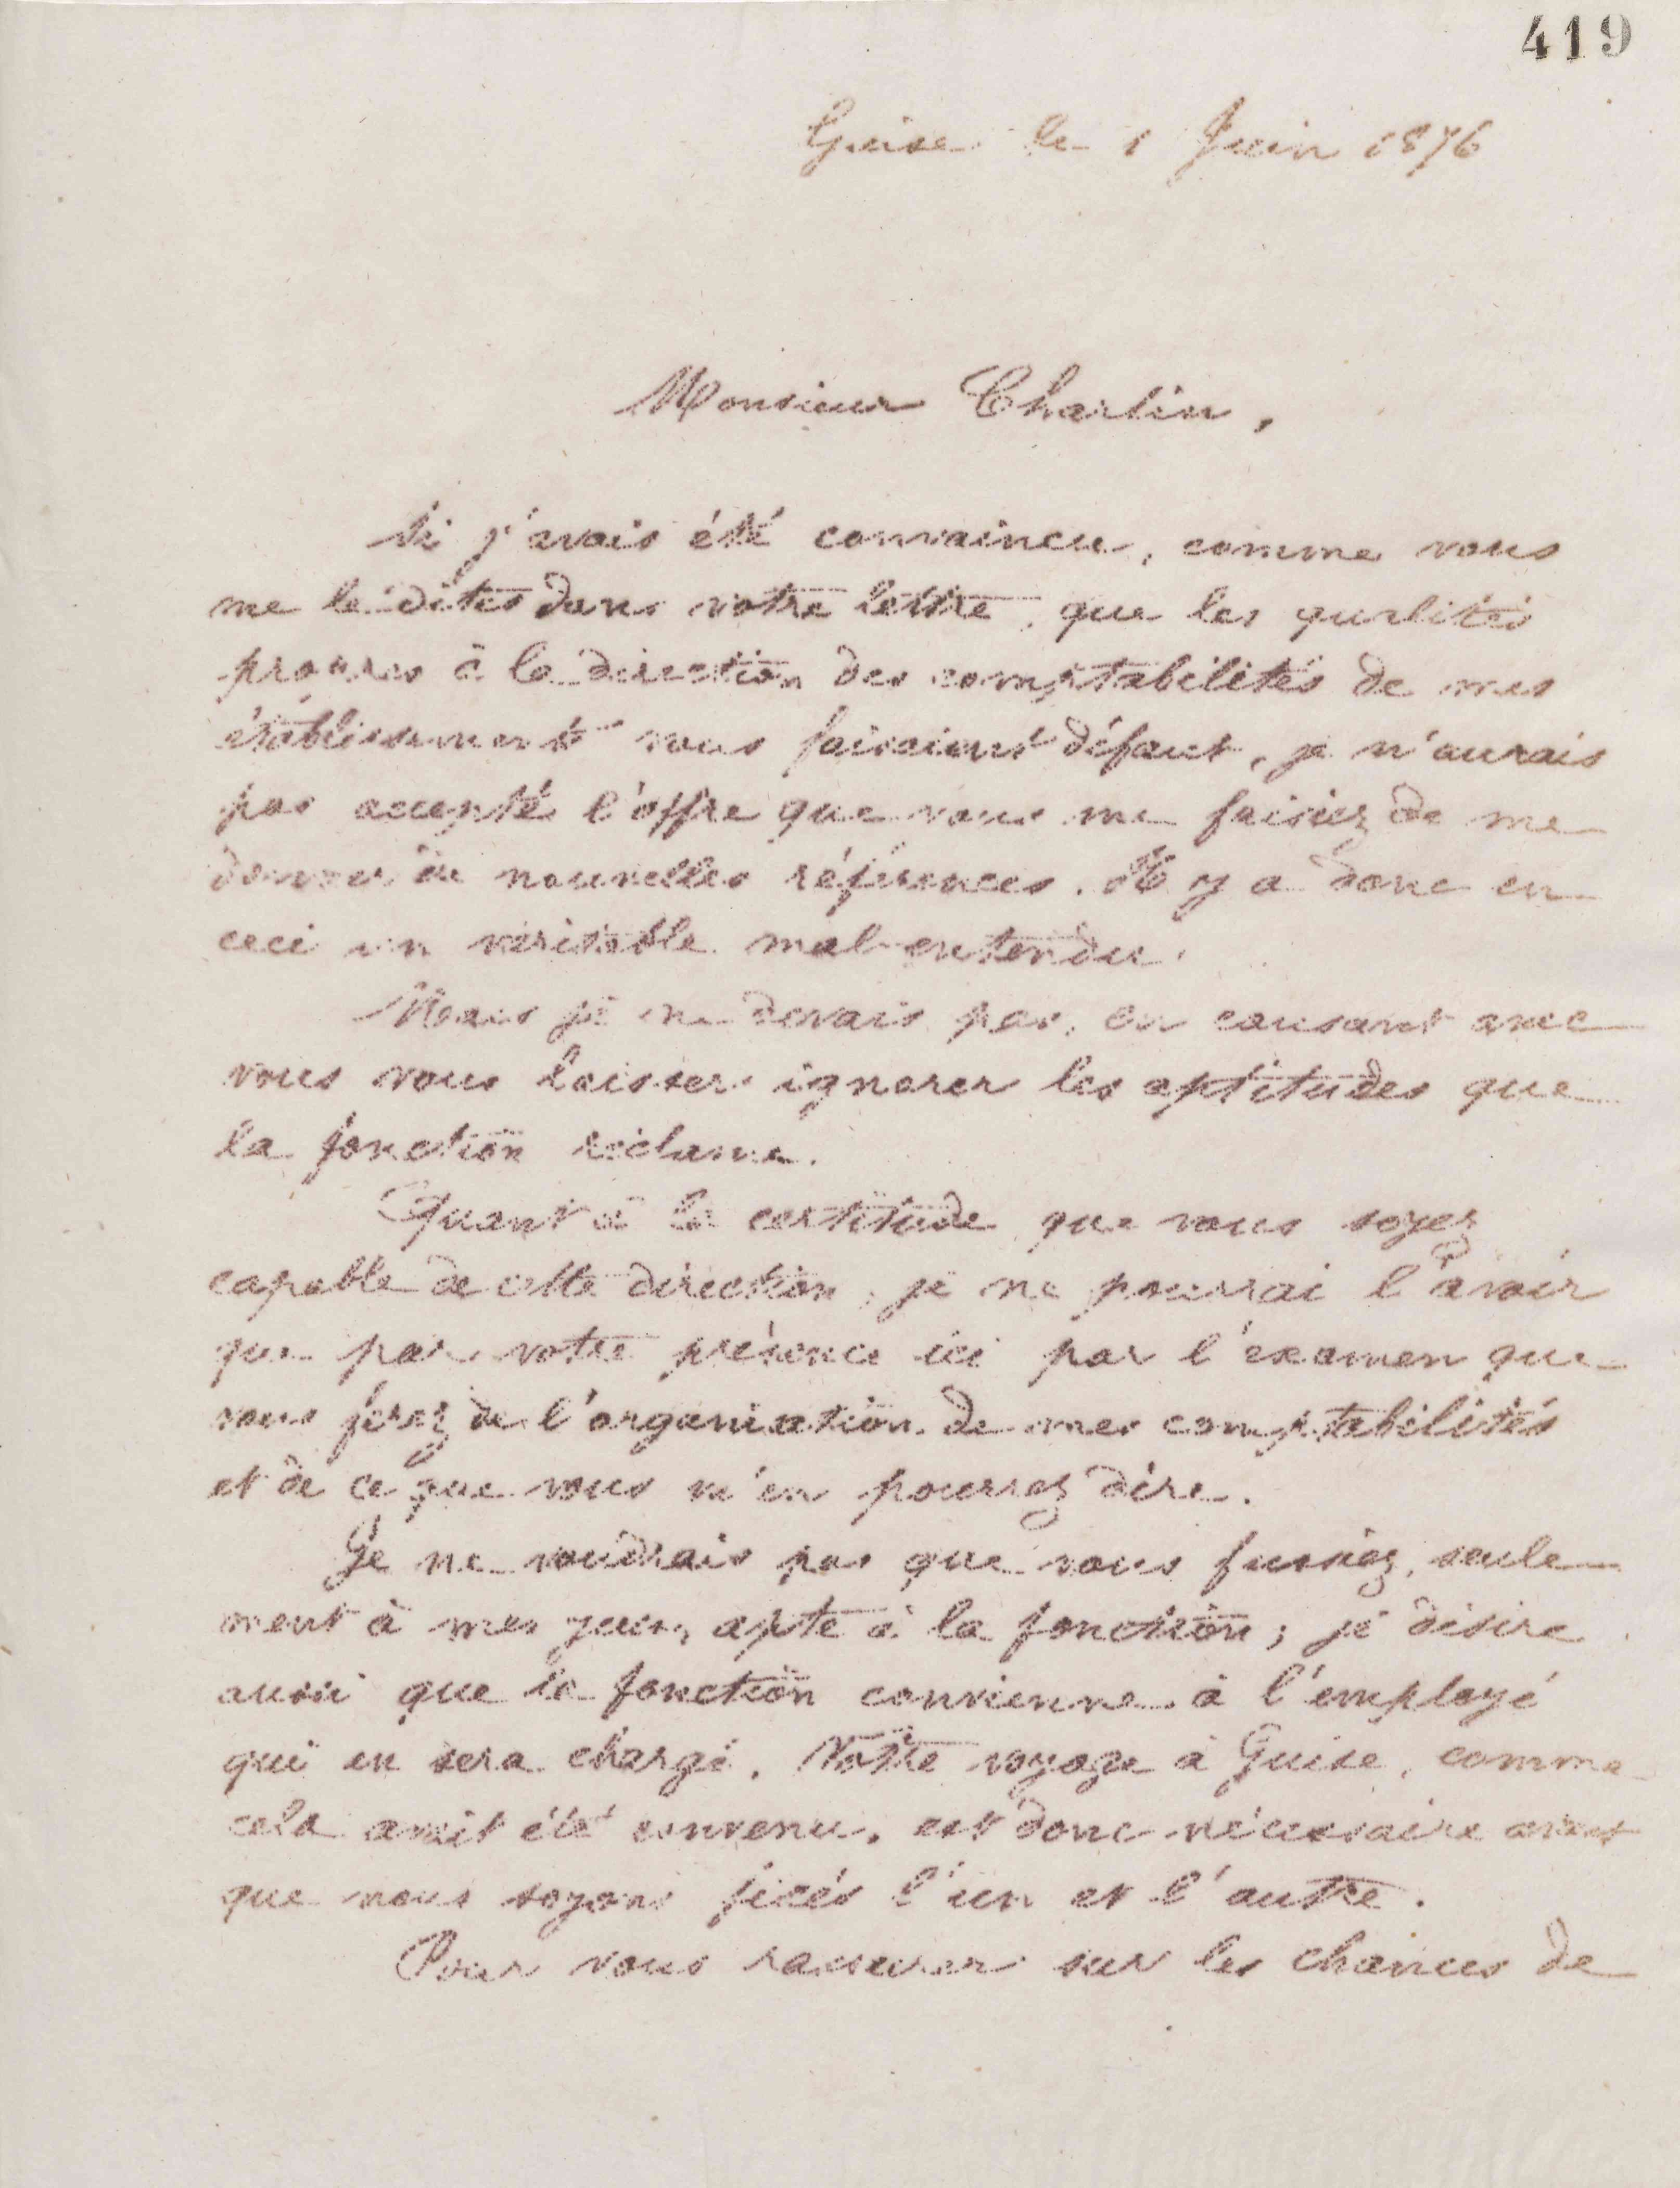 419
Guise le 1 Juin 1876
Monsieur Charlin,
Si j'avais été convaincu, comme vous
me le dites dans votre lettre, que les qualités
propres à la direction des comptabilités de mes
établissements vous faisaient défaut, je n'aurais
pas accepté l'offre que vous me faisiez de me
donner de nouvelles références. Il y a donc en
ceci un véritable mal-entendu.
Mais je ne devais pas, en causant avec
vous vous laisser ignorer les aptitudes que
la fonction réclame.
Quant à la certitude que vous soyez
capable de cette direction, je ne pourrai l'avoir
que par votre présence ici par l'examen que
vous ferez de l'organisation de mes comptabilités
et de ce que vous m'en pourrez dire.
Je ne voudrais pas que vous fussiez, seule-
ment à mes yeux, apte à la fonction; je désire
aussi que la fonction convienne à l'employé
qui en sera chargé. Votre voyage à Guise, comme
cela avait été convenu, est donc nécessaire avant
que nous soyons fixés l'un et l'autre.
Pour vous rassurer sur les chances de